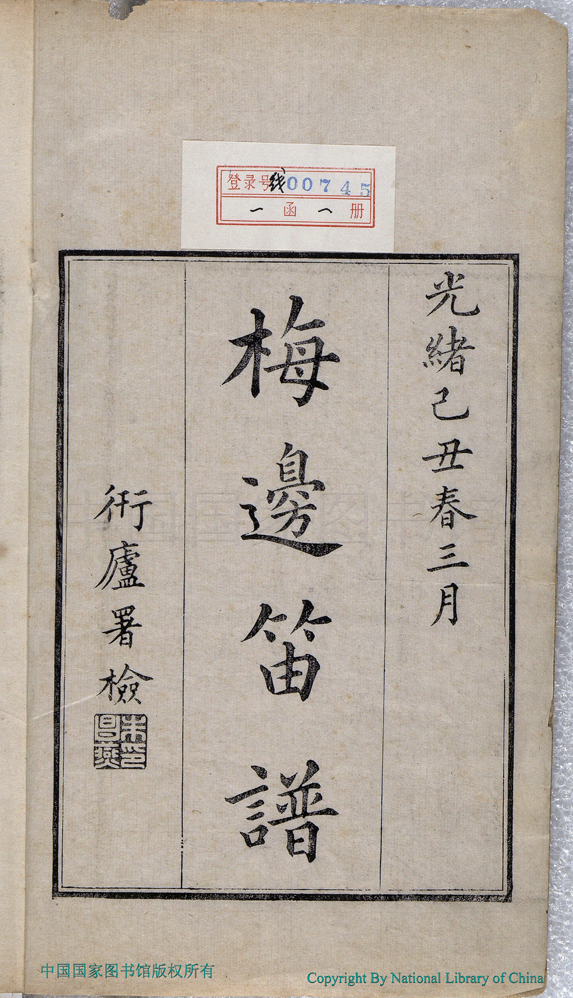 登录号线00745
一函一册
光緒己丑春三月
梅邊笛譜
衎廬署檢
朱昌燕印
中国国家图书馆版权所有
Copyright By National Library of China